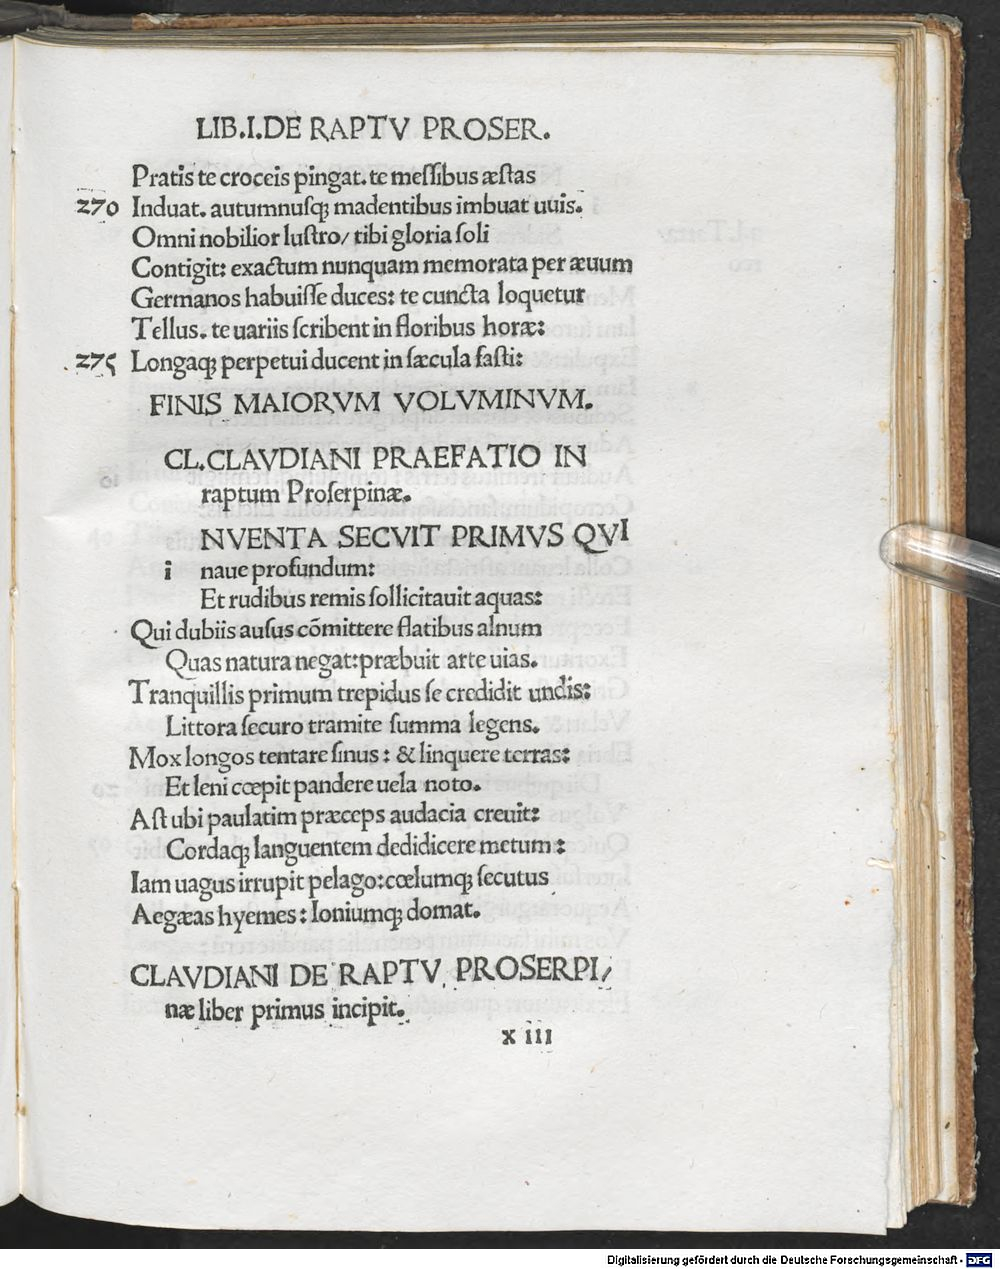 LIB.I.DE RAPTV PROSER.
Pratis te croceis pingat. te messibus æstas
270 Induat. autumnusqꝫ madentibus imbuat uuis.
Omni nobilior lustro/ tibi gloria soli
Contigit: exactum nunquam memorata per æuum
Germanos habuisse duces: te cuncta loquetur
Tellus. te uariis scribent in floribus horæ:
275 Longaqꝫ perpetui ducent in sæcula fasti:
FINIS MAIORVM VOLVMINVM.
CL.CLAVDIANI PRAEFATIO IN
raptum Proserpinæ.
NVENTA SECVIT PRIMVS QVI
i naue profundum:
Et rudibus remis sollicitauit aquas:
Qui dubiis ausus cõmittere flatibus alnum
Quas natura negat: præbuit arte uias.
Tranquillis primum trepidus se credidit undis:
Littora securo tramite summa legens.
Mox longos tentare sinus: & linquere terras:
Et leni cœpit pandere uela noto.
Ast ubi paulatim præceps audacia creuit:
Cordaqꝫ languentem dedidicere metum:
Iam uagus irrupit pelago: cœlumqꝫ secutus
Aegæas hyemes: Ioniumqꝫ domat.
CLAVDIANI DE RAPTV PROSERPI/
næ liber primus incipit.
x iii
Digitalisierung gefördert durch die Deutsche Forschungsgemeinschaft - DFG